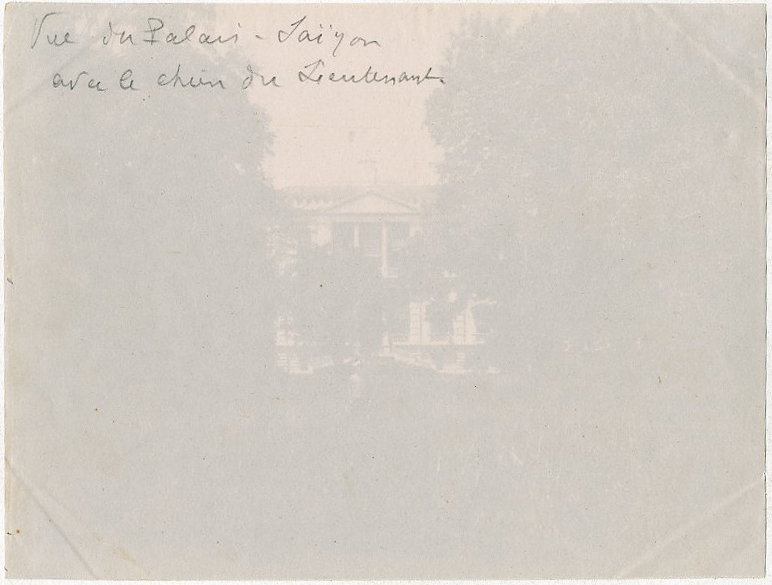 Vue du Palais - Saïgon
avec le chien du Lieutenant